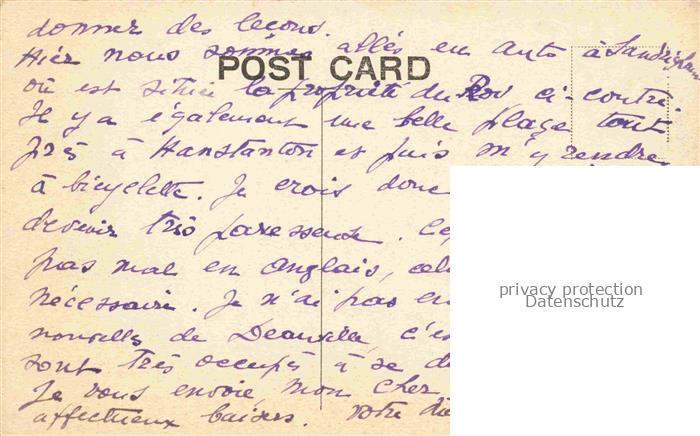 donner des leçons.
Hier nous sommes allés en auto à Sandrigham
POST CARD
où est située la propriété du Roi ci-contre.
Il y a également une belle plage tout
près à Hanstanton et puis m'y rendre
à bicyclette. Je crois donc
devenir très paresseuse.
pas mal en anglais,
nécessaire. Je n'ai pas
nouvelles de Deauville,
sont très occupés à se
Je vous envoie, mon cher
affectueux baisers. Votre
privacy protection
Datenschutz